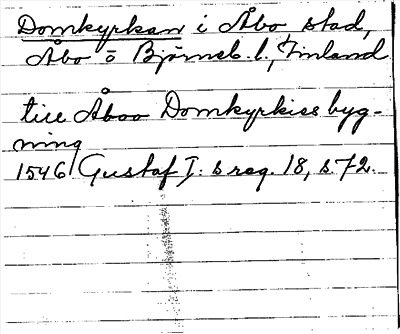 Domkyrkan i Åbo stad,
Åbo o Björneb. l., Finland
till Åboo Domkyrkies byg-
ning
1546 Gustaf I:s reg. 18, s. 72.